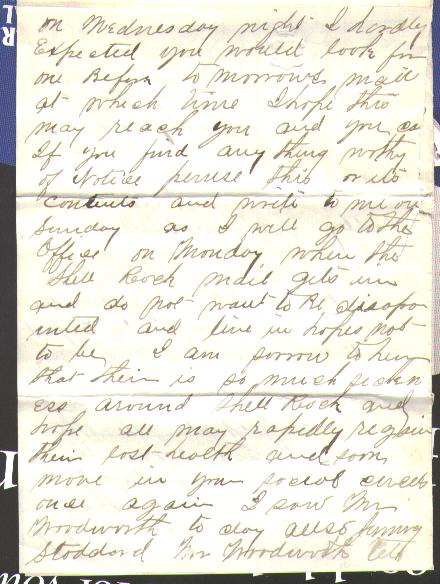 on Wednesday night I hardly
Expected you would look for
one Before to morrows mail
at which time I hope this
may reach you and you can
If you find any thing worthy
of Notice peruse this or its
contents and write to me on
Sunday as I will go to the
Office on Monday when the
Shell Rock mail gets in
and do not want to Be disapo
inted and live in hopes not
to be I am sorrow to hear
that their is so much sickn
ess around Shell Rock and
hope all may rapidly regain
their lost health and soon
move in your social circles
once again I saw Mr
Woodworth to day allso
Stoddard Mr Woodworth